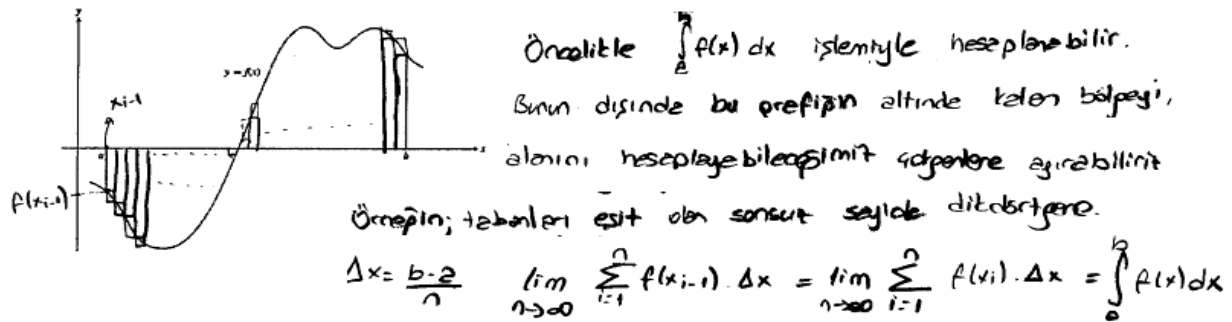 y
y = f(x)
xi-1
a
b
x
f(xi-1)
Öncelikle ∫ₐᵇ f(x) dx işlemiyle hesaplanabilir.
Bunun dışında bu grafiğin altında kalan bölgeyi,
alanını hesaplayabileceğimiz çokgenlere ayırabiliriz
Örneğin; tabanları eşit olan sonsuz sayıda dikdörtgene.
Δx = (b-a)/n lim n→∞ ∑ i=1 n f(xi-1) . Δx = lim n→∞ ∑ i=1 n f(xi) . Δx = ∫ₐᵇ f(x) dx